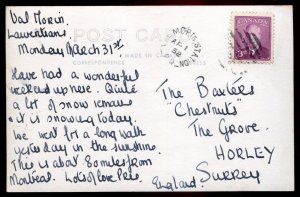 Val Morin.
Laurentians
Monday March 31st
Have had a wonderful
weekend up here. Quite
a lot of snow remains
it is snowing today.
We went for a long walk
yesterday in the sunshine.
This is about 80 miles from
Montreal. Lots of love
England.
POST CARD
CORRESPONDENCE
AP 1
CANADA
The Baxters
"Chestnuts"
The Grove.
HORLEY
SURREY